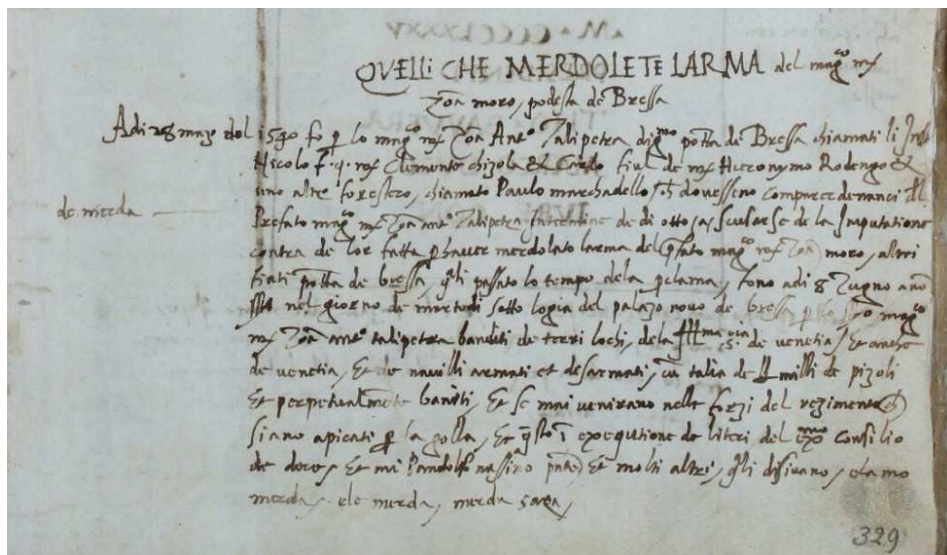 QVELLI CHE MERDOLETE LARMA del mag.co mr
Zoã moro, podesta de Bressa
Adi 28 mazo del 1540 fo p lo mag.co mr Zoã Ant.o Zalipetra dig.mo potta de Bressa chiamati li
Nicolo F. q. mr Clemente chizola & Carlo fiul de mr Hieronymo Rodengo &
uno altro forestero, chiamato Paulo marchadello, dovesseno comparer denanci
de merda
Prefato mag.co mr Zoã ant.o Zalipetra de di otto a scusarse de la Imputatione
contra de lor fatta p haver merdolato larma del pfato mag.co mr Zoã moro, altri
fiati potta de bressa, qli passato lo tempo dela pclama, fono adi 8 Zugno
nel giorno de martedi sotto logia del palazo novo de bressa p mag.co
mr Zoã ant.o talipetra banditi de terri lochi, dela Ill.ma S.ria de venetia, Et anche
de venetia, Et de navilli armati et desarmati, cũ talia de milli de pizoli
Et perpetualmẽte banditi, Et se mai venirano nelle forzi del rezimento
siano apicati p la golla, Et qsto ĩ exequtione de literi del ex.mo consilio
de dece, Et mi Pandolfo nassino pñte, Et molti altri, qli disivano, elamo
merda, ele merda, merda sara,
329